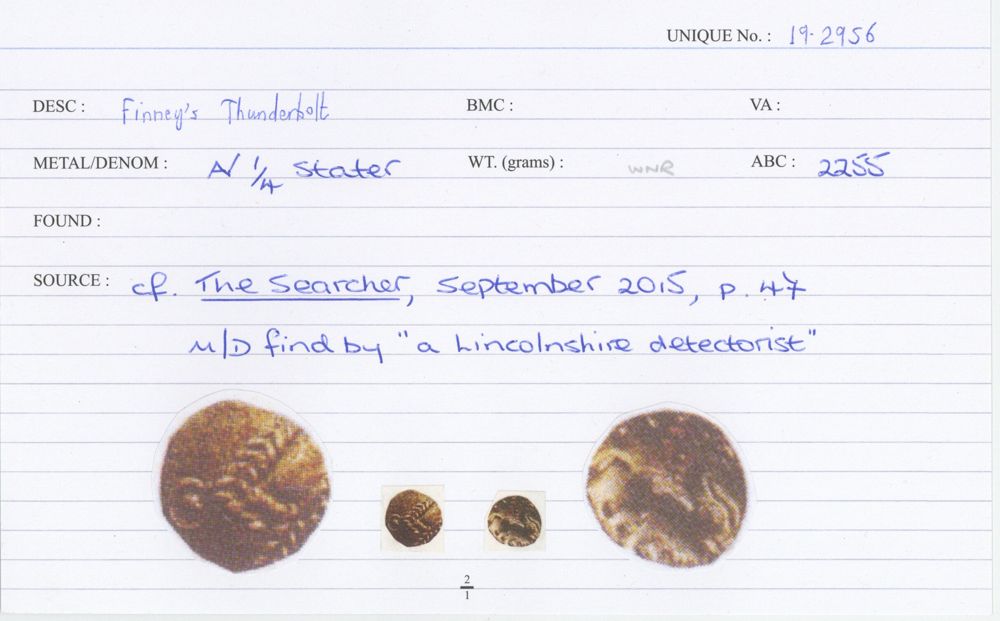 UNIQUE No. : 19-2956
DESC : Finney's Thunderbolt BMC : VA :
METAL/DENOM : A/ 1/4 Stater WT. (grams) : WNR ABC : 2255
FOUND :
SOURCE : cf. The Searcher, September 2015, p. 47
M/D find by "a Lincolnshire detectorist"
2
1